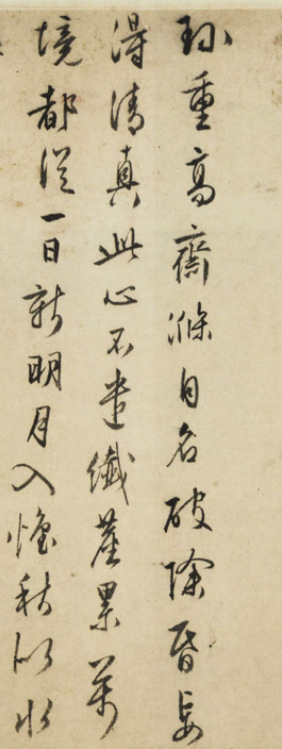 珎重高齋滌目名破除昏妄
淂清真此心不遣纖塵累萬
境都從一日新明月入懷秋似水